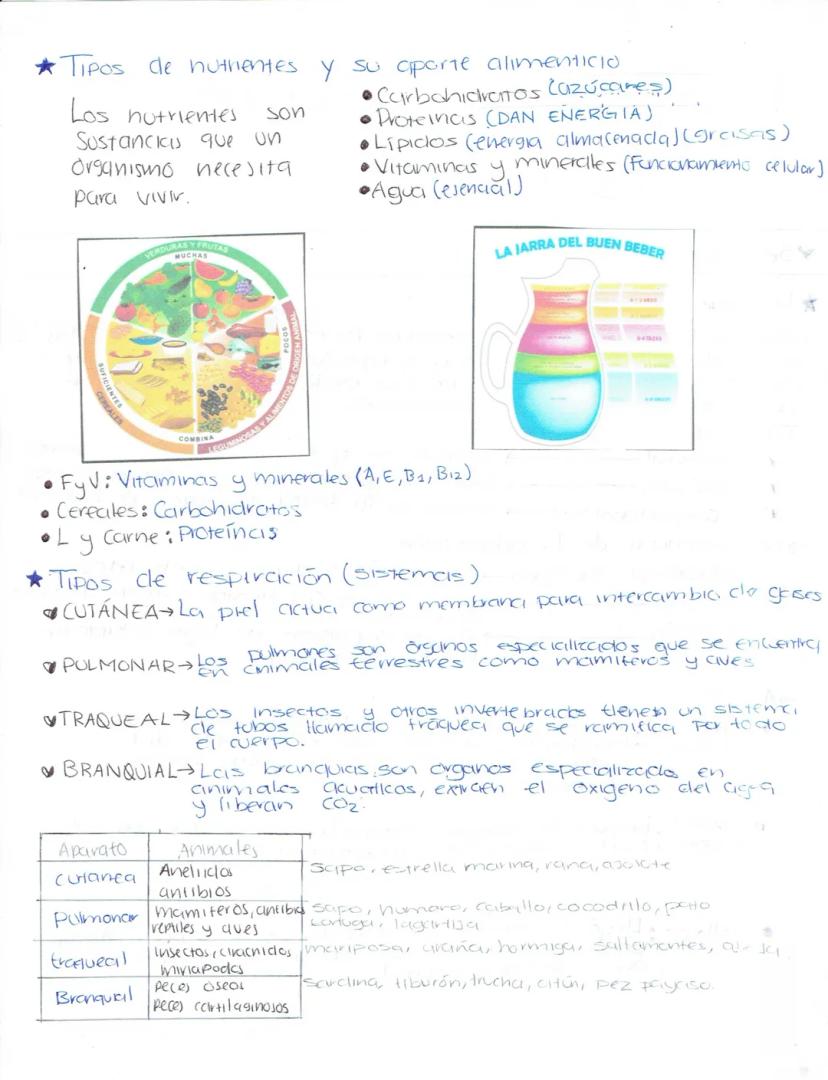 ★ Tipos de nutrientes y su aporte alimenticio
Los nutrientes son
sustancias que un
organismo necesita
para vivir.
• Carbohidratos (azúcares)
• Proteínas (DAN ENERGÍA)
• Lípidos (energia almacenada) (grasas)
• Vitaminas y minerales (Funcionamiento celular)
• Agua (esencial)
VERDURAS Y FRUTAS
MUCHAS
SUFICIENTES
CEREALES
COMBINA
POCOS
LEGUMINOSAS Y ALIMENTOS DE ORIGEN ANIMAL
LA JARRA DEL BUEN BEBER
• FyV: Vitaminas y minerales (A, E, B1, B12)
• Cereales: Carbohidratos
• L y Carne: Proteínas
★ Tipos de respiración (sistemas)
CUTÁNEA→La piel actua como membrana para intercambio de gases
PULMONAR→Los pulmones son órganos especializados que se encuentra
en animales terrestres como mamiferos y aves
TRAQUEAL→Los insectos y otros invertebrados tienen un sistema
de tubos llamado tráquea que se ramifica por todo
el cuerpo.
BRANQUIAL→Las branquias son órganos especializados en
animales acuaticos, extraen el oxigeno del agua
y liberan CO2.
Aparato Animales
cutanea Anelidos
anfibios
Sapo, estrella marina, rana, ajolote
Pulmonar mamiferos, anfibios
reptiles y aves
Sapo, humano, caballo, cocodrilo, pato
tortuga, lagartija
traqueal Insectos, aracnidos
miriapodos
mariposa, araña, hormiga, saltamontes,
Branquial Peces oseos
Peces cartilaginosos
Sardina, tiburón, trucha, atún, pez payaso.